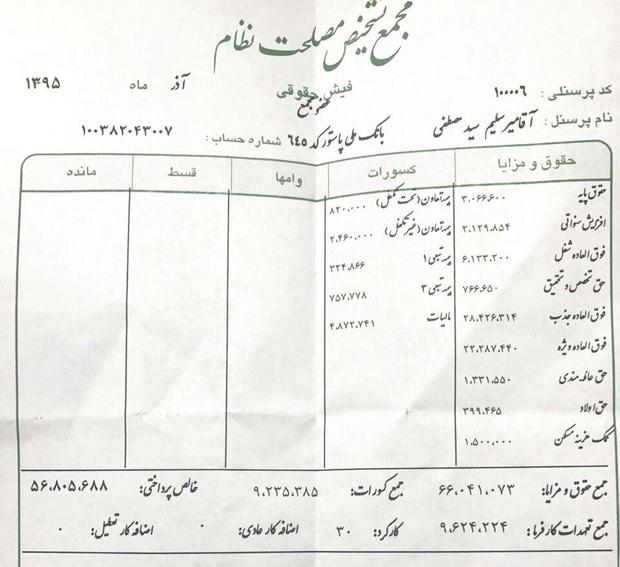 مجمع تشخیص مصلحت نظام
فیش حقوقی
آذر ماه ۱۳۹۵
عضو مجمع
کد پرسنلی: ۱۰۰۰۰۶
نام پرسنل: آقامیرسلیم سید مصطفی
بانک ملی پاستور کد ۶۴۵ شماره حساب: ۱۰۰۳۸۲۰۴۳۰۰۷
حقوق و مزایا کسورات وامها قسط مانده
حقوق پایه ۳.۰۶۶.۶۰۰ بیمه تعاون (تحت تکفل) ۸۲۰.۰۰۰
افزایش سنواتی ۲.۱۲۹.۸۵۴ بیمه تعاون (غیر تکفل) ۲.۴۶۰.۰۰۰
فوق العاده شغل ۶.۱۳۳.۲۰۰ بیمه تبعی ۱ ۳۲۴.۸۶۶
حق تخصص و تحقیق ۷۶۶.۶۵۰ بیمه تبعی ۳ ۷۵۷.۷۷۸
فوق العاده جذب ۲۸.۴۲۶.۳۱۴ مالیات ۴.۸۷۲.۷۴۱
فوق العاده ویژه ۲۲.۲۸۷.۴۴۰
حق عائله مندی ۱.۳۳۱.۵۵۰
حق اولاد ۳۹۹.۴۶۵
کمک هزینه مسکن ۱.۵۰۰.۰۰۰
جمع حقوق و مزایا: ۶۶.۰۴۱.۰۷۳ جمع کسورات: ۹.۲۳۵.۳۸۵ خالص پرداختی: ۵۶.۸۰۵.۶۸۸
جمع تعهدات کارفرما: ۹.۶۲۴.۲۲۴ کارکرد: ۳۰ اضافه کار عادی: ۰ اضافه کار تعطیل: ۰